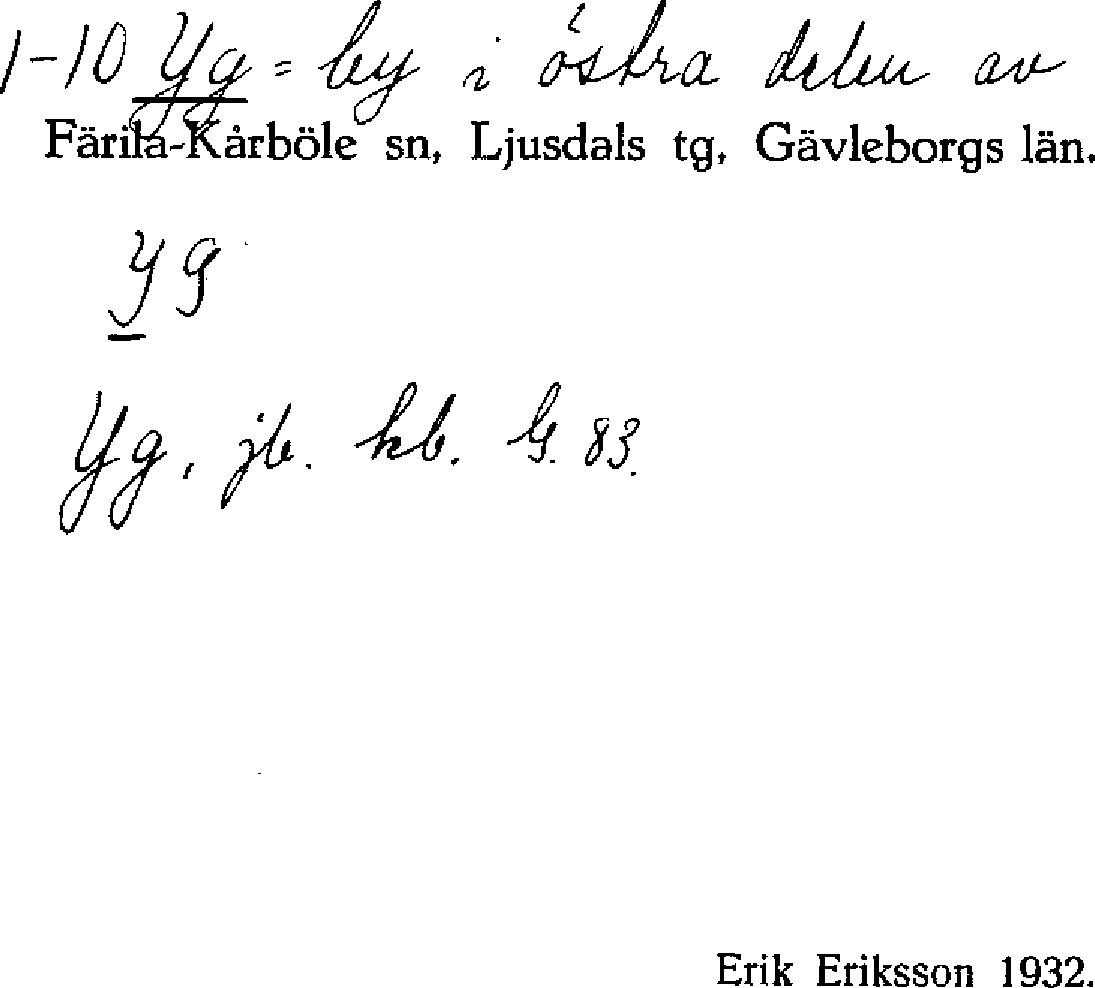 1-10 Yg = by i östra delen av
Färila-Kårböle sn, Ljusdals tg, Gävleborgs län.
yg
Yg, jb. kb. G. 83.
Erik Eriksson 1932.